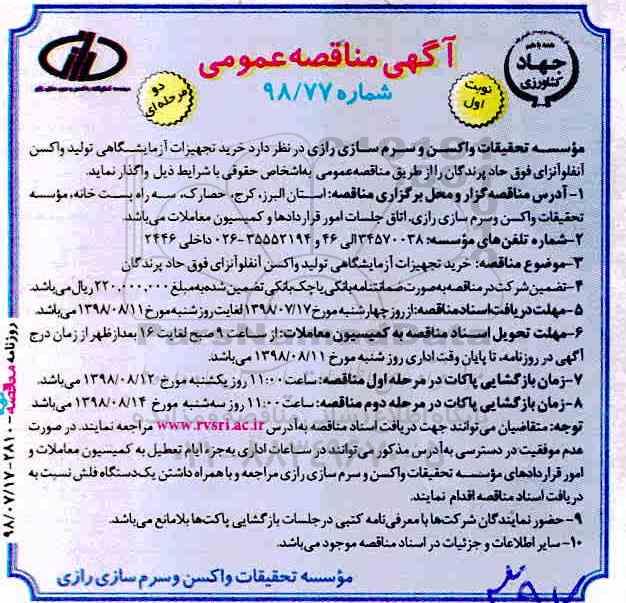 جهاد
کشاورزی
آگهی مناقصه عمومی
شماره ۹۸/۷۷
نوبت
اول
دو
مرحله‌ای
مؤسسه تحقیقات واکسن و سرم سازی رازی در نظر دارد خرید تجهیزات آزمایشگاهی تولید واکسن
آنفلوآنزای فوق حاد پرندگان را از طریق مناقصه عمومی به اشخاص حقوقی با شرایط ذیل واگذار نماید.
۱- آدرس مناقصه گزار و محل برگزاری مناقصه: استان البرز، کرج، حصارک، سه راه پست خانه، مؤسسه
تحقیقات واکسن و سرم سازی رازی، اتاق جلسات امور قراردادها و کمیسیون معاملات می‌باشد.
۲- شماره تلفن‌های مؤسسه: ۳۴۵۷۰۰۳۸ الی ۴۶ و ۳۵۵۵۲۱۹۴-۰۲۶ داخلی ۲۴۴۶
۳- موضوع مناقصه: خرید تجهیزات آزمایشگاهی تولید واکسن آنفلوآنزای فوق حاد پرندگان
۴- تضمین شرکت در مناقصه به صورت ضمانتنامه بانکی یا چک بانکی تضمین شده به مبلغ ۲۲۰,۰۰۰,۰۰۰ ریال می‌باشد.
۵- مهلت دریافت اسناد مناقصه: از روز چهارشنبه مورخ ۱۳۹۸/۰۷/۱۷ لغایت روز شنبه مورخ ۱۳۹۸/۰۸/۱۱ می‌باشد.
۶- مهلت تحویل اسناد مناقصه به کمیسیون معاملات: از ساعت ۹ صبح لغایت ۱۶ بعدازظهر از زمان درج
آگهی در روزنامه، تا پایان وقت اداری روز شنبه مورخ ۱۳۹۸/۰۸/۱۱ می‌باشد.
۷- زمان بازگشایی پاکات در مرحله اول مناقصه: ساعت ۱۱:۰۰ روز یکشنبه مورخ ۱۳۹۸/۰۸/۱۲ می‌باشد.
۸- زمان بازگشایی پاکات در مرحله دوم مناقصه: ساعت ۱۱:۰۰ روز سه‌شنبه مورخ ۱۳۹۸/۰۸/۱۴ می‌باشد
توجه: متقاضیان می‌توانند جهت دریافت اسناد مناقصه به آدرس www.rvsri.ac.ir مراجعه نمایند. در صورت
عدم موفقیت در دسترسی به آدرس مذکور می‌توانند در ساعات اداری به جزء ایام تعطیل به کمیسیون معاملات و
امور قراردادهای مؤسسه تحقیقات واکسن و سرم سازی رازی مراجعه و با همراه داشتن یک دستگاه فلش نسبت به
دریافت اسناد مناقصه اقدام نمایند.
۹- حضور نمایندگان شرکت‌ها با معرفی نامه کتبی در جلسات بازگشایی پاکت‌ها بلامانع می‌باشد.
۱۰- سایر اطلاعات و جزئیات در اسناد مناقصه موجود می‌باشد.
مؤسسه تحقیقات واکسن و سرم سازی رازی
روزنامه مناقصه - ۲۸۱۰ - ۹۸/۰۷/۱۷